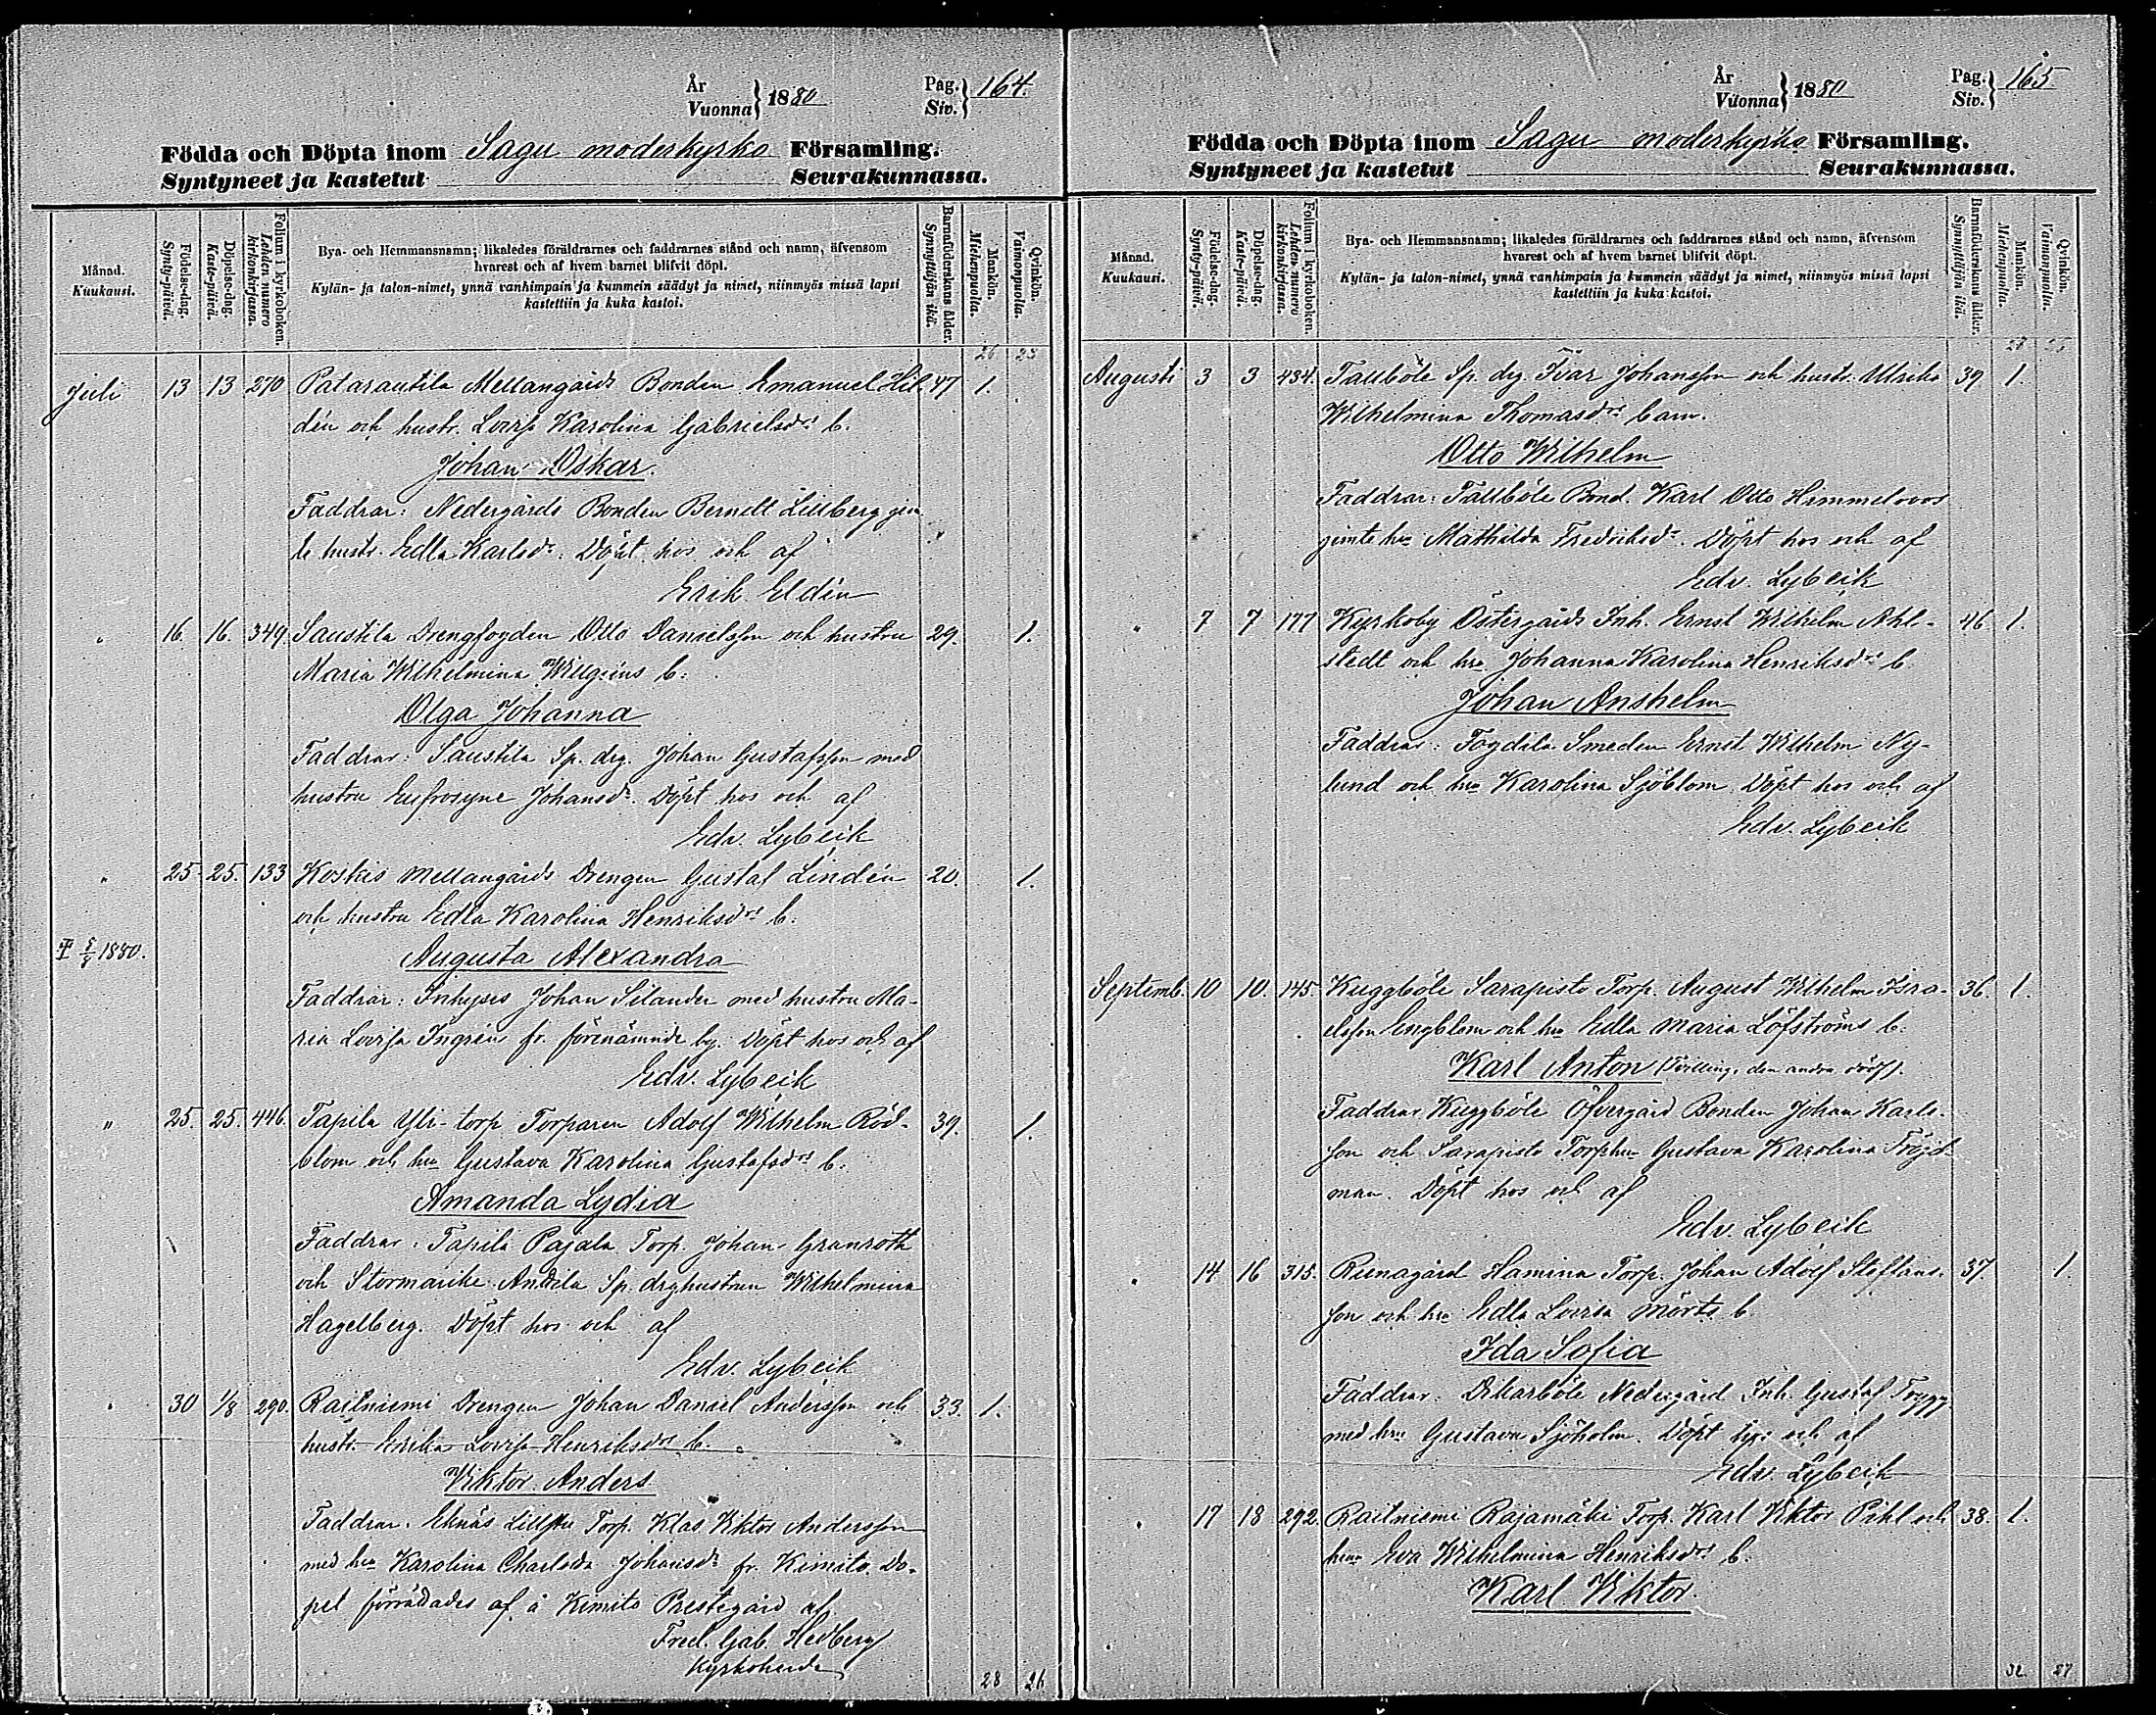 År
Vuonna } 1880
Pag.
Siv. } 164.
Födda och Döpta inom Sagu moderkyrko Församling.
Syntyneet ja kastetut Seurakunnassa.
Månad.
Kuukausi.
Födelse-dag.
Synty-päivä.
Döpelse-dag.
Kaste-päivä.
Folium i kyrkoboken.
Lehden numero kirkonkirjassa.
Bya- och Hemmansnamn; likaledes föräldrarnes och faddrarnes stånd och namn, äfvensom
hvarest och af hvem barnet blifvit döpt.
Kylän- ja talon-nimet, ynnä vanhimpain ja kummein säädyt ja nimet, niinmyös missä lapsi
kastettiin ja kuka kastoi.
Barnaföderskans ålder.
Synnyttäjän ikä.
Mankön.
Miehenpuolia.
Qvinkön.
Vaimonpuolia.
26 23
Juli 13 13 270 Patarautila Mellangårds Bonden Emanuel Hil- 47 1.
dén och hustr. Lovisa Karolina Gabrielsdrs b.
Johan Oskar.
Faddrar: Nedergårds Bonden Berndt Lillberg jem
te hustr. Edla Karlsdr. Döpt hos och af
Erik Eldén
" 16. 16. 349. Saustila Drengfogden Otto Danielsson och hustru 29. 1.
Maria Wilhelmina Willgréns b.
Olga Johanna
Faddrar: Saustila Sp. drg. Johan Gustafsson med
hustru Eufrosyne Johansdr. Döpt hos och af
Edv. Lybeck
" 25. 25. 133 Koskis Mellangårds Drengen Gustaf Lindén 20. 1.
och hustru Edla Karolina Henriksdrs b.
8/8 1880.
Augusta Alexandra
Faddrar: Inhyses Johan Silander med hustru Ma-
ria Lovisa Ingrén fr. förenämnde by. Döpt hos och af
Edv. Lybeck
" 25. 25. 446. Tapila Yli-torp Torparen Adolf Wilhelm Röd- 39. 1.
blom och hru Gustava Karolina Gustafsdrs b.
Amanda Lydia
Faddrar: Tapila Pajala Torp. Johan Granroth
och Stormarike Andila Sp. drghustrun Wilhelmina
Hagelberg. Döpt hos och af
Edv. Lybeck
" 30 1/8 290. Railniemi Drengen Johan Daniel Andersson och 33. 1.
hustr. Erika Lovisa Henriksdrs b.
Viktor Anders
Faddrar. Eknäs Torp. Klas Viktor Andersson
med hru Karolina Charlotta Johansdr fr. Kimito. Do-
pet förrättades af å Kimito Prestegård af
Fred. Gab. Hedberg
Kyrkoherde
28 26
År
Vuonna } 1880
Pag.
Siv. } 165
Födda och Döpta inom Sagu moderkyrko Församling.
Syntyneet ja kastetut Seurakunnassa.
Månad.
Kuukausi.
Födelse-dag.
Synty-päivä.
Döpelse-dag.
Kaste-päivä.
Folium i kyrkoboken.
Lehden numero kirkonkirjassa.
Bya- och Hemmansnamn; likaledes föräldrarnes och faddrarnes stånd och namn, äfvensom
hvarest och af hvem barnet blifvit döpt.
Kylän- ja talon-nimet, ynnä vanhimpain ja kummein säädyt ja nimet, niinmyös missä lapsi
kastettiin ja kuka kastoi.
Barnaföderskans ålder.
Synnyttäjän ikä.
Mankön.
Miehenpuolia.
Qvinkön.
Vaimonpuolia.
Augusti 3 3 434. Tallböle Sp. drg. Ivar Johansson och hustr. Ulrika 39 1.
Wilhelmina Thomasdrs barn.
Otto Wilhelm
Faddrar: Tallböle Bond. Karl Otto Himmelroos
jemte hru Mathilda Fredriksdr. Döpt hos och af
Edv. Lybeck
" 7 7 177 Kyrkoby Östergårds Inh. Ernst Wilhelm Ahl- 46 1.
stedt och hru Johanna Karolina Henriksdrs b
Johan Anshelm
Faddrar: Fogdila Smeden Ernst Wilhelm Ny-
lund och hru Karolina Sjöblom. Döpt hos och af
Edv. Lybeck
Septemb. 10 10. 145. Kuggböle Sarapisto Torp. August Wilhelm Isra- 36. 1.
elsson Engblom och hru Edla Maria Löfströms b.
Karl Anton (Tvilling, den andra dödf).
Faddrar Kuggböle Öfvergård Bonden Johan Karls-
son och Sarapisto Torphru Gustava Karolina Fröjd-
man. Döpt hos och af
Edv. Lybeck
" 14 16 315. Runagård Hamina Torp. Johan Adolf Steffans- 37. 1.
son och hru Edla Lovisa Mörts b.
Ida Sofia
Faddrar. Dikarböle Nedergård Inh. Gustaf Trygg
med hru Gustava Sjöholm. Döpt hos och af
Edv. Lybeck
" 17 18 292. Railniemi Rajamäki Torp. Karl Viktor Pihl och 38. 1.
hru Eva Wilhelmina Henriksdrs b.
Karl Viktor.
32 27